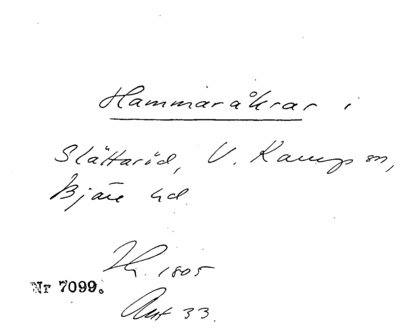 Hammaråkrar i
Slättaröd, V. Karup sn,
Bjäre hd.
1805
Nr 7099.
Akt 33.